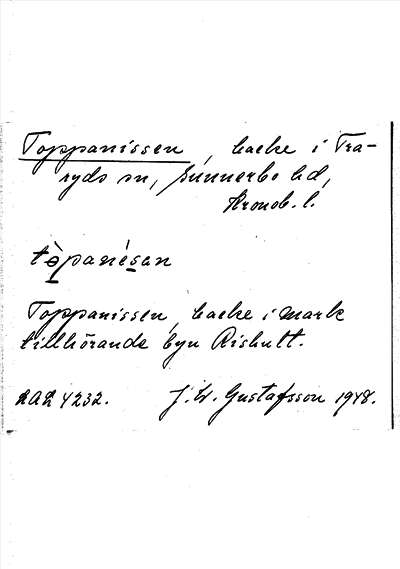 Toppanissen, backe i Tra-
ryds sn, Sunnerbo hd,
Kronob. l.
tòpanésan
Toppanissen, backe i mark
tillhörande byn Rishult.
LAL 4232. J. W. Gustafsson 1948.